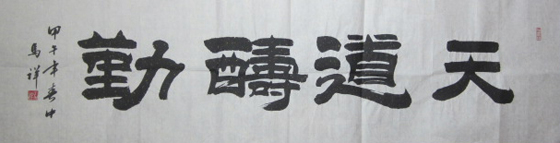 天道醻勤
甲午年春中
馬祥